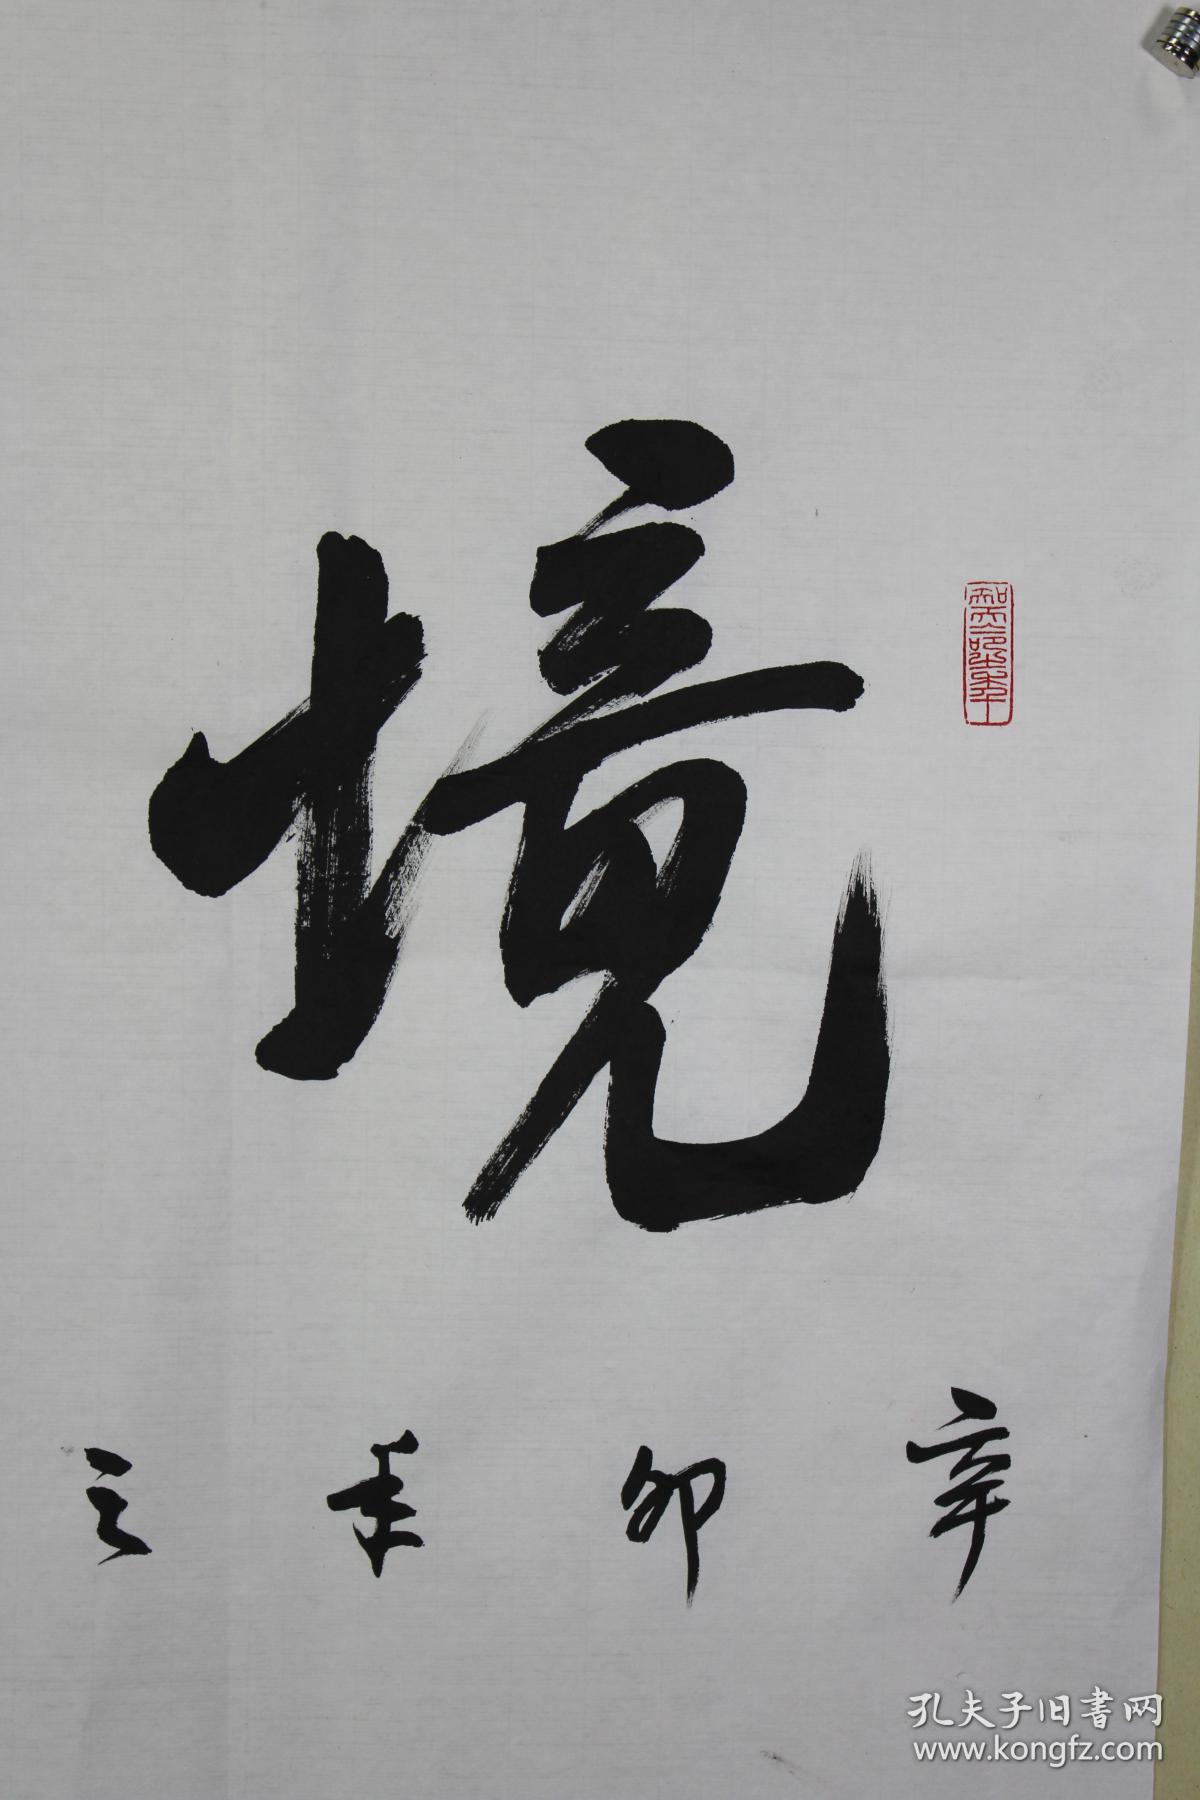 境
辛卯年之
孔夫子旧书网
www.kongfz.com